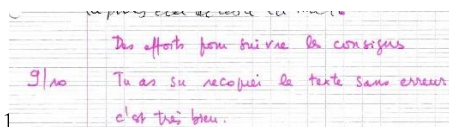 Des efforts pour suivre les consignes
9/10 Tu as su recopier le texte sans erreur
c'est très bien.
1